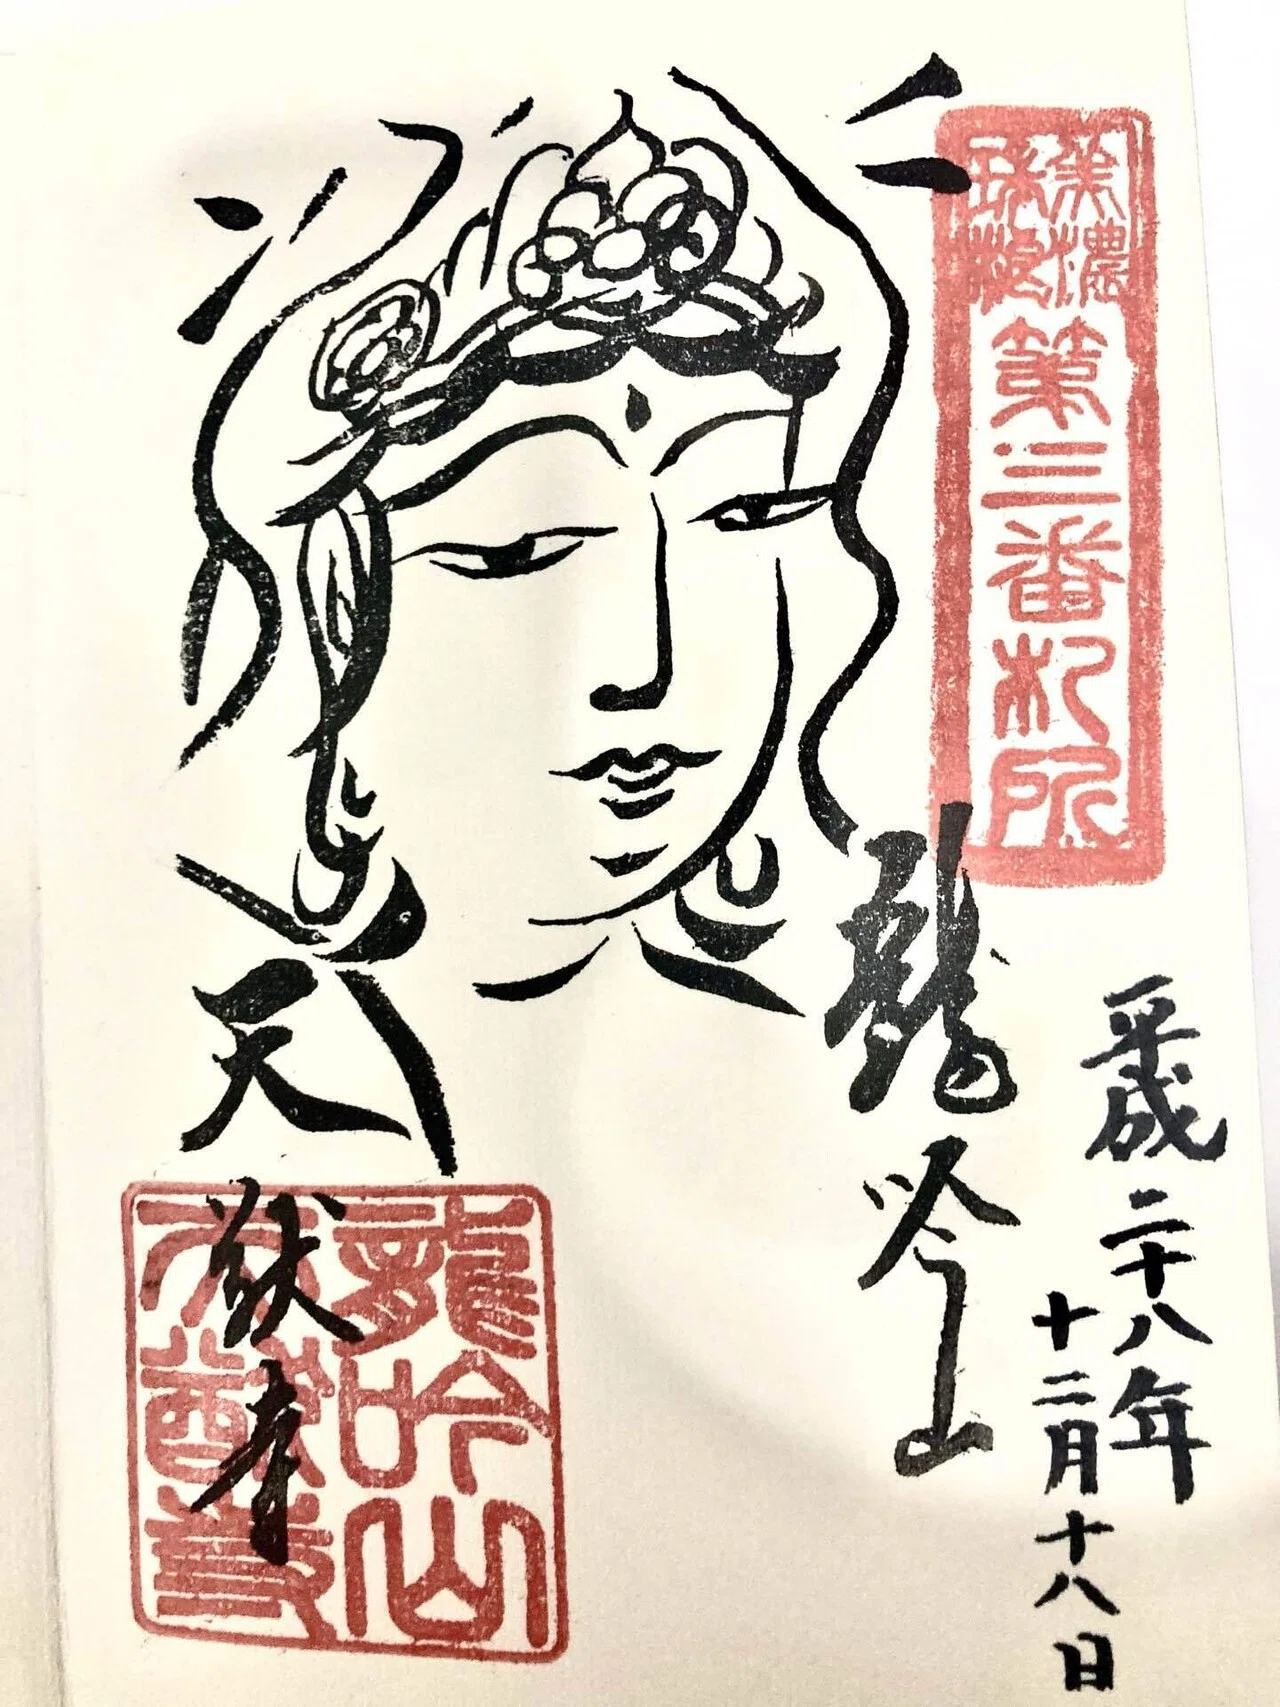 美濃
瑞浪
第三番札所
平成二十八年
十二月十八日
龍吟山
天猷寺
龍吟山